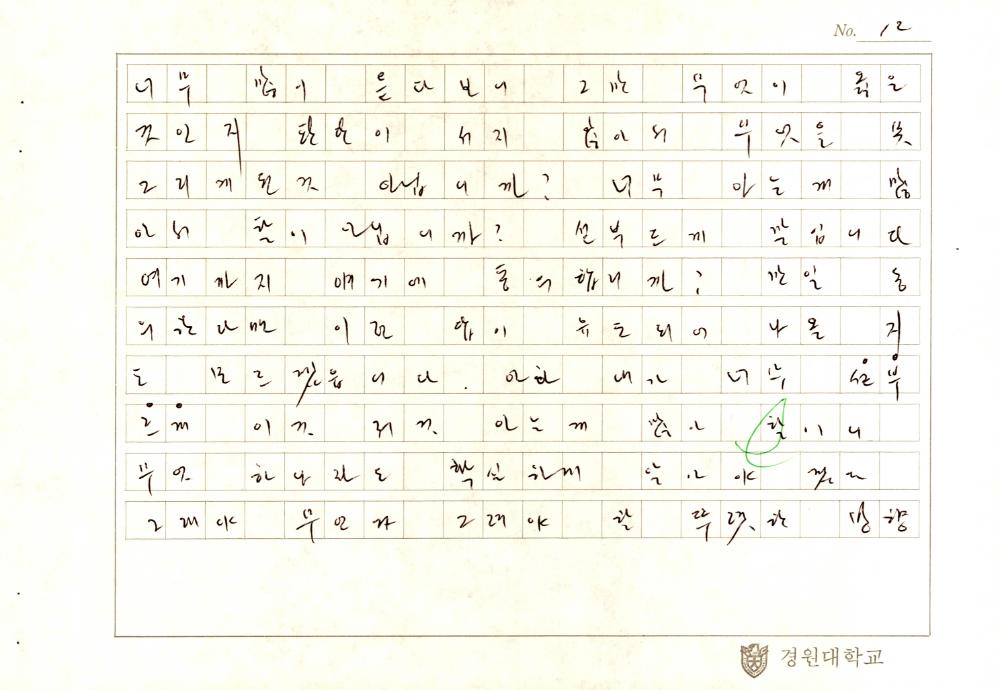 No. 12
너무 많이 듣다보니 그만 무엇이 옳은
것인지 판단이 서지 않아서 무엇을 못
그리게된것 아닙니까? 너무 아는게 많
아서 탈이 아닙니까? 선부르게 말입니다
여기까지 얘기에 동의합니까? 만일 동
의한다면 이런 답이 유도되어 나올지
도 모르겠읍니다. 아하 내가 너무 선부
르게 이것 저것 아는게 많아 탈이니
무엇 하나라도 확실하게 알아야 겠다
그래야 무언가 그래야 할 뚜렷한 방향
경원대학교